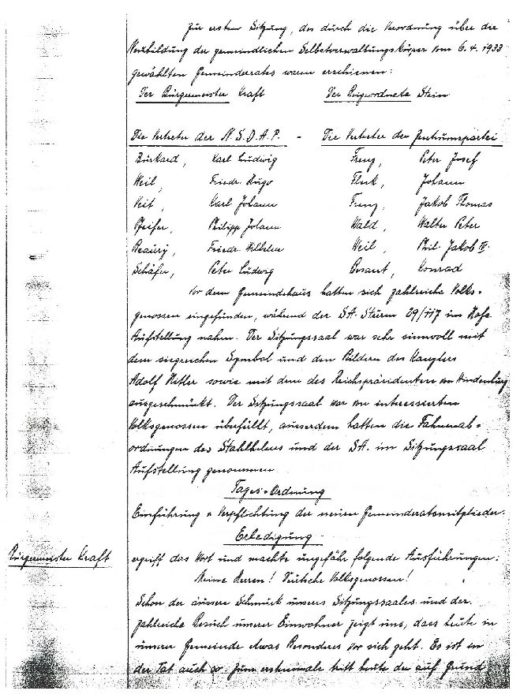 Zur ersten Sitzung, des durch die Verordnung über die
Neubildung der gemeindlichen Selbstverwaltungskörper vom 6.4.1933
gewählten Gemeinderates waren erschienen:
Der Bürgermeister Kraft Der Beigeordnete Stein
Die Vertreter der N.S.D.A.P. - Die Vertreter der Zentrumspartei
Burkard, Karl Ludwig Frenz, Peter Josef
Weil, Friedr. Hugo Fleck, Johann
Veit, Karl Johann Frenz, Jakob Thomas
Pfeifer, Philipp Johann Wald, Walter Peter
Friedr. Wilhelm Weil, Phil. Jakob II.
Schäfer, Peter Ludwig Konrad
Vor dem Gemeindehaus hatten sich zahlreiche Volks-
genossen eingefunden, während der SA. Sturm 29/117 im Hofe
Aufstellung nahm. Der Sitzungssaal war sehr sinnvoll mit
dem siegreichen Symbol und den Bildern des Kanzlers
Adolf Hitler sowie mit dem des Reichspräsidenten von Hindenburg
ausgeschmückt. Der Sitzungssaal war von interessierten
Volksgenossen überfüllt, ausserdem hatten die Fahnenab-
ordnungen des Stahlhelms und der SA. im Sitzungssaal
Aufstellung genommen
Tages-Ordnung
Einführung u Verpflichtung der neuen Gemeinderatsmitglieder.
Erledigung.
Bürgermeister Kraft ergriff das Wort und machte ungefähr folgende Ausführungen:
Meine Herren! Deutsche Volksgenossen!
Schon der äussere Schmuck unseres Sitzungssaales und der
zahlreiche Besuch unserer Einwohner zeigt uns, dass heute in
unserer Gemeinde etwas Besonderes vor sich geht. Es ist in
der Tat auch so. Zum erstenmale tritt heute der auf Grund